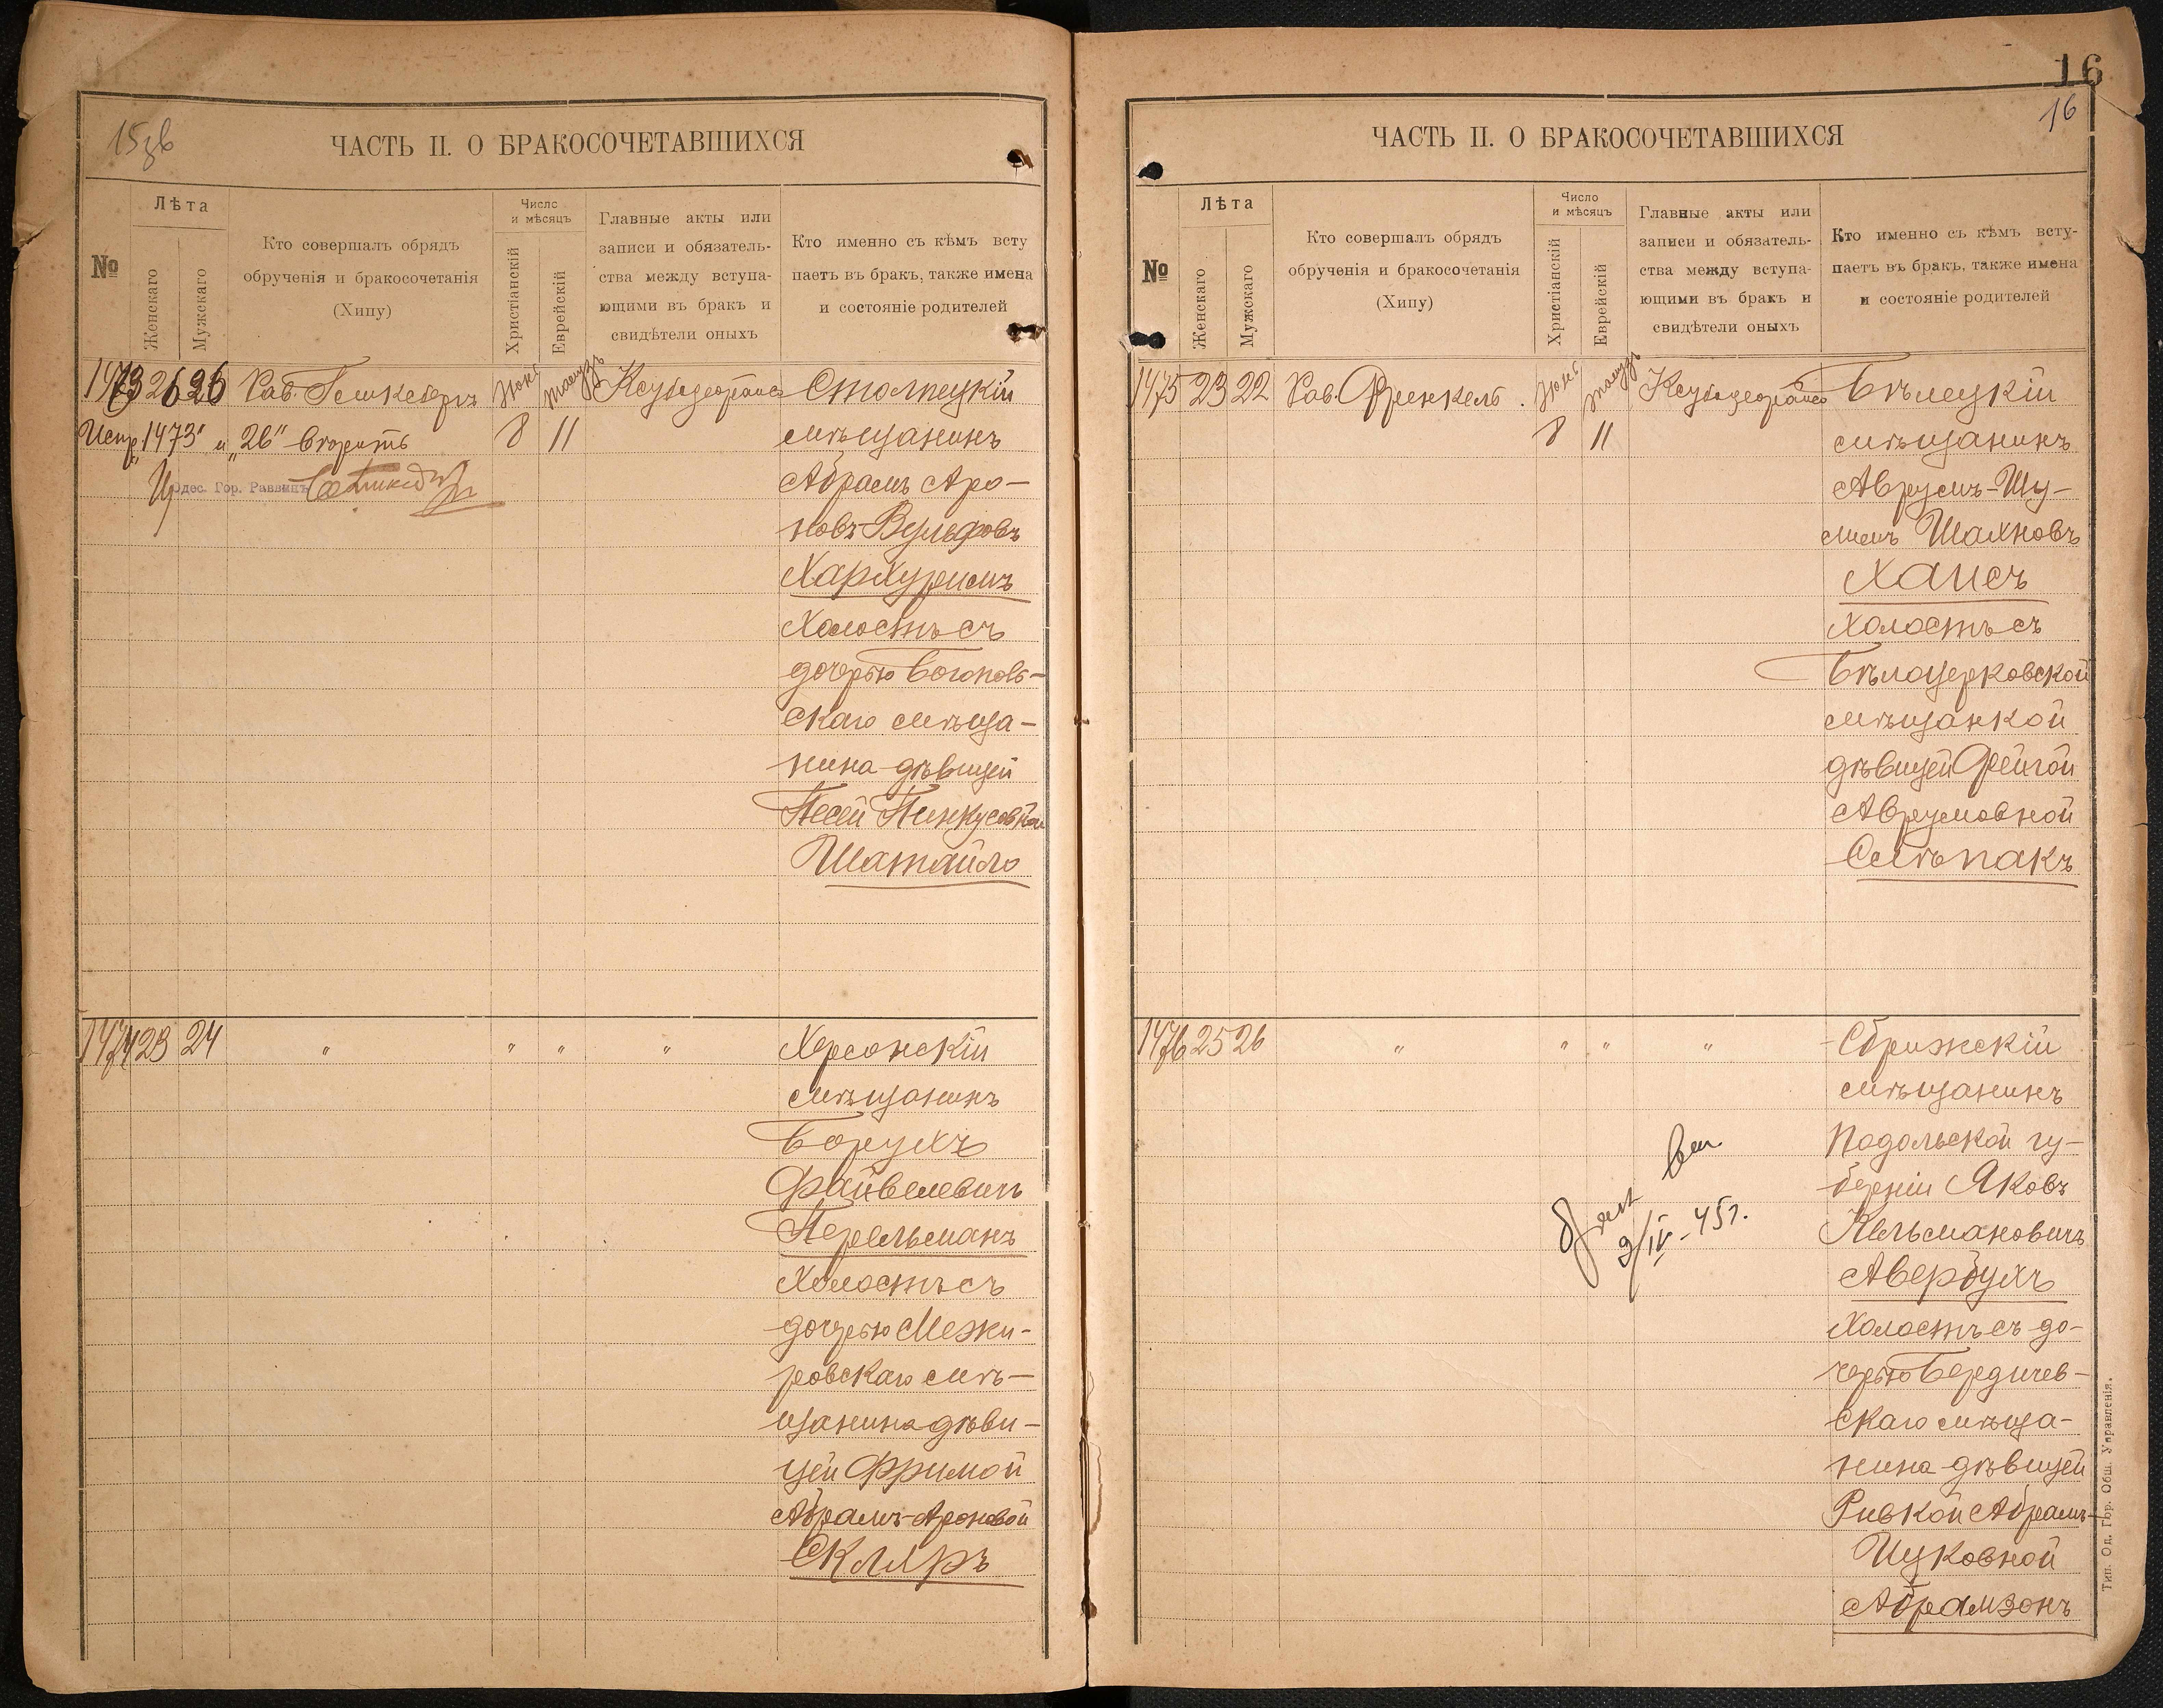 15зв
ЧАСТЬ II. О БРАКОСОЧЕТАВШИХСЯ
№
Лѣта
Женскаго
Мужскаго
Кто совершалъ обрядъ
обрученія и бракосочетанія
(Хипу)
Число
и мѣсяцъ
Христіанскій
Еврейскій
Главные акты или
записи и обязатель-
ства между вступа-
ющими въ бракъ и
свидѣтели оныхъ
Кто именно съ кѣмъ всту
паетъ въ бракъ, также имена
и состояніе родителей
1473 26 26 Рав.
8 11
Испр. „1473" и „26" вѣрить
Одес. Гор. Раввинъ
Столпецкій
мѣщанинъ
Абрамъ Аро-
новъ-Вульфовъ
Хархуримъ
Холостъ съ
дочерью Богопольс-
скаго мѣща-
нина дѣвицей
Песей Пинкусовной
Шатайло
1474 23 24 " " " "
Херсонскій
мѣщанинъ
Борухъ
Файвелевичъ
Перельманъ
Холостъ съ
дочерью Межи-
ровскаго мѣ-
щанина дѣви-
цей Фримой
Абрамъ-Ароновой
Скляръ
16
16
ЧАСТЬ II. О БРАКОСОЧЕТАВШИХСЯ
№
Лѣта
Женскаго
Мужскаго
Кто совершалъ обрядъ
обрученія и бракосочетанія
(Хипу)
Число
и мѣсяцъ
Христіанскій
Еврейскій
Главные акты или
записи и обязатель-
ства между вступа-
ющими въ бракъ и
свидѣтели оныхъ
Кто именно съ кѣмъ всту-
паетъ въ бракъ, также имена
и состояніе родителей
1475 23 22 Рав. Френкель.
8 11
Бѣлецкій
мѣщанинъ
Аврумъ-Шу-
лимъ Шахновъ
Хаисъ
Холостъ съ
Бѣлоцерковской
мѣщанкой
дѣвицей Фейгой
Аврумовной
Смѣпакъ
1476 25 26 " " " "
9/IV-45г.
Сбрижскій
мѣщанинъ
Подольской гу-
берніи Яковъ
Кельмановичъ
Авербухъ
Холостъ съ до-
черью Бердичев-
скаго мѣща-
нина дѣвицей
Ривкой Абрамъ-
Ицковной
Абрамзонъ
Тип. Од. Гор. Общ. Управленія.